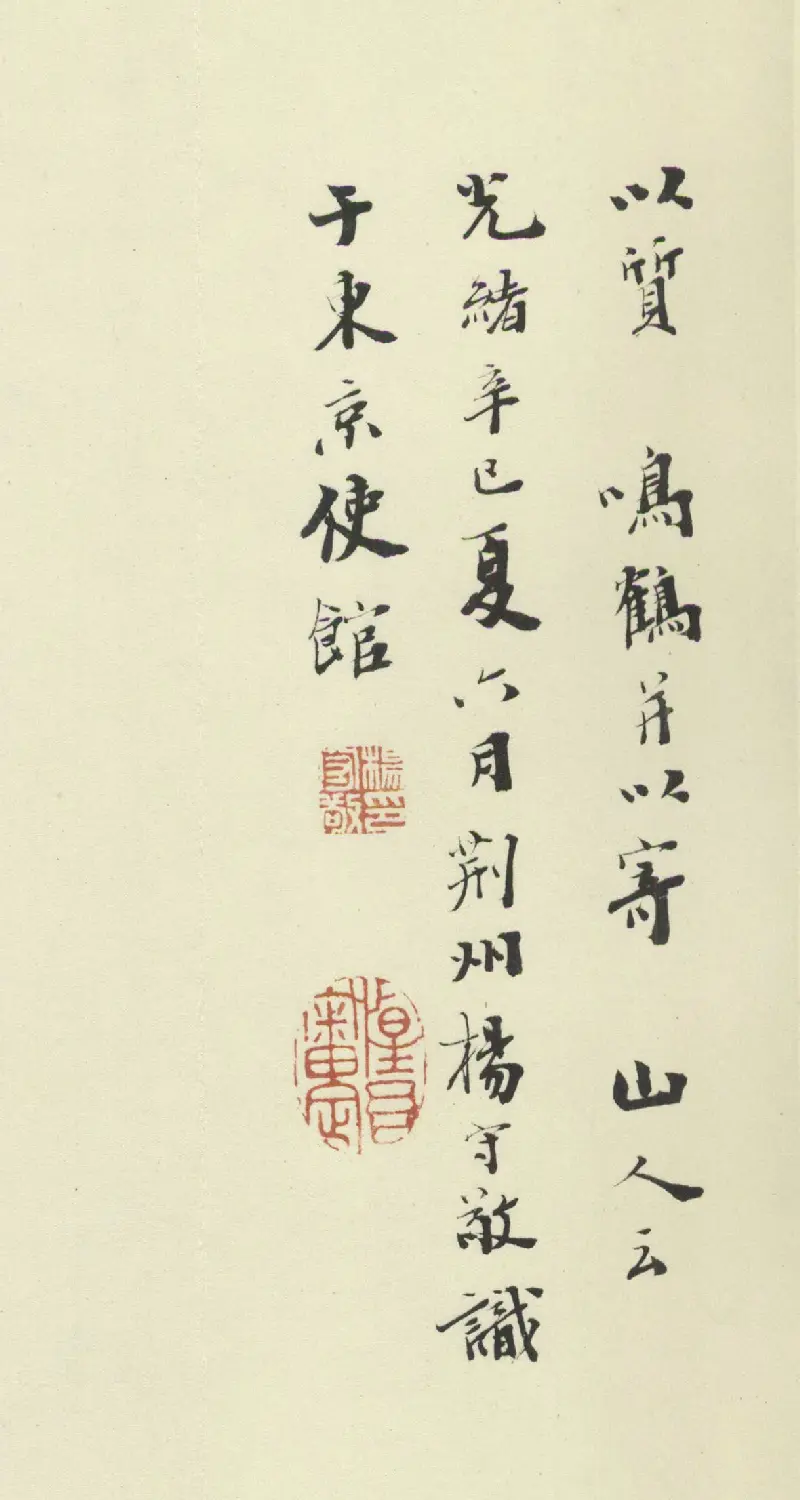 以質　鳴鶴并以寄　山人云
光緒辛巳夏六月荆州楊守敬識
于東京使館
楊守敬印
星吾審定